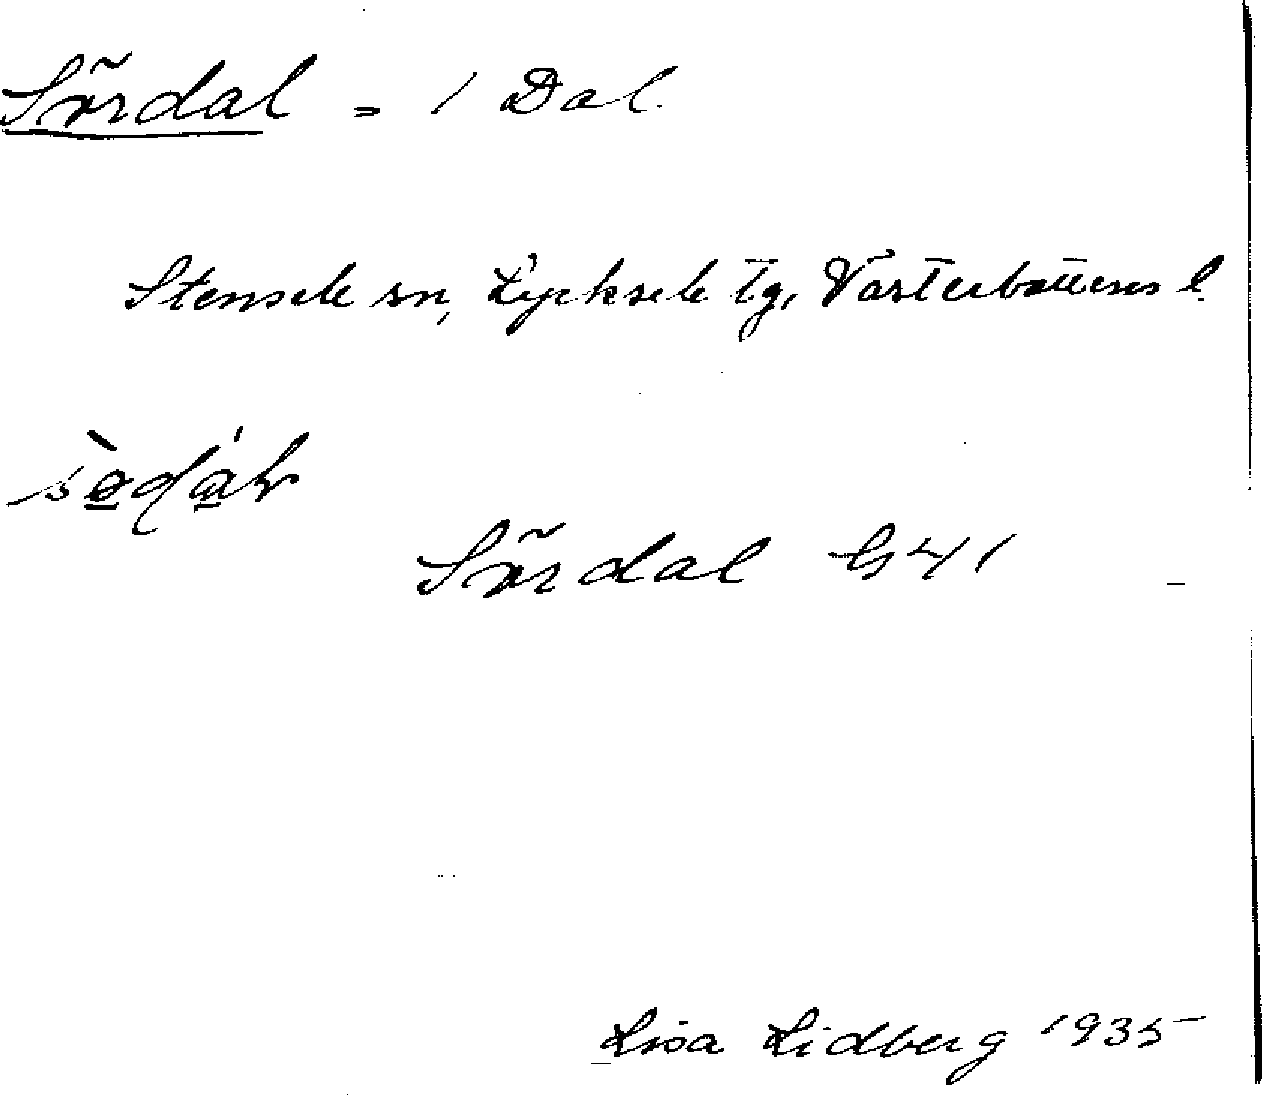 Sördal = 1 Dal.
Stensele sn, Lycksele tg, Västerbottens l.
Sördal G41
Lisa Lidberg 1935